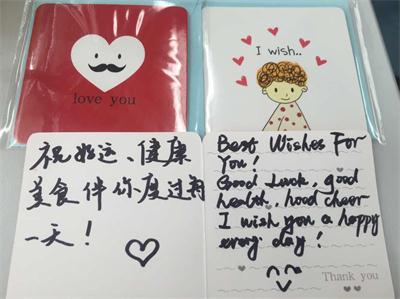 love you
I wish..
祝好运、健康
美食伴你度过每
一天!
Best Wishes For
You!
Good Luck, good
health, hood cheer
I wish you a happy
every day!
Thank you